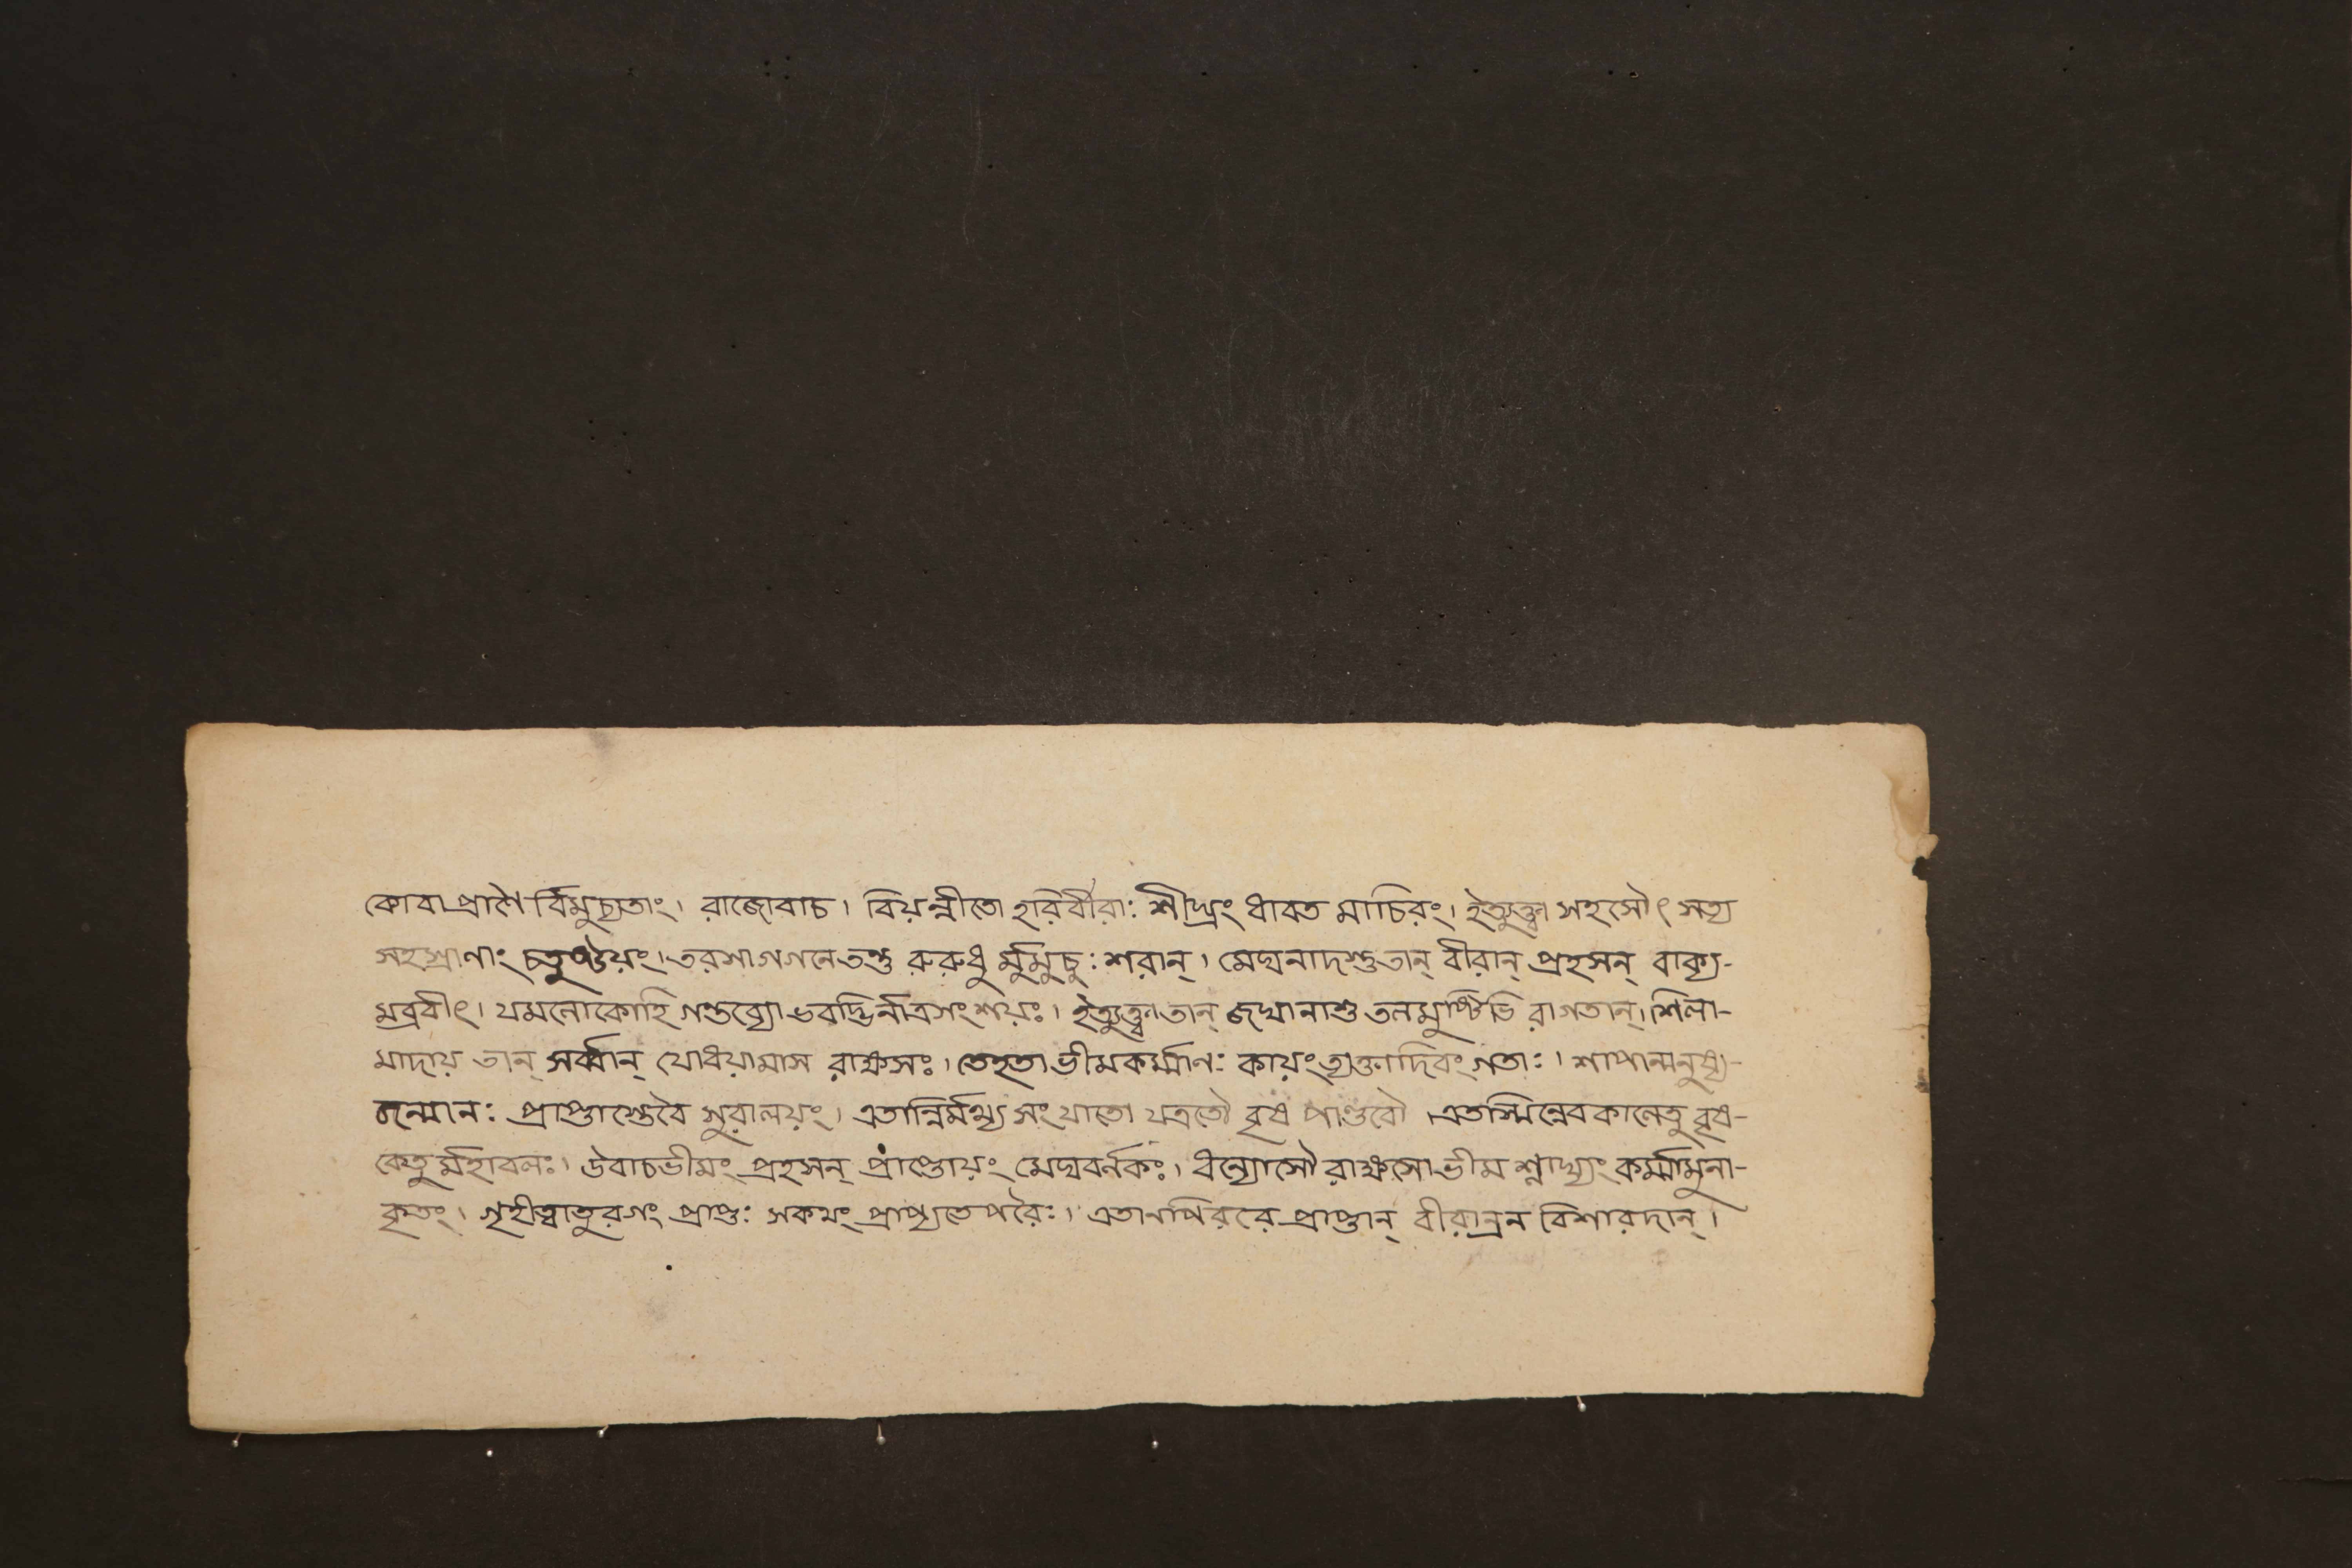 কোবা প্রাণৈ র্বিমুচ্যতাং। রাজোবাচ। বিয়ন্নীতো হরির্বীরাঃ শীঘ্রং ধাবত মাচিরং। ইত্যুক্ত্বা সহসৌৎ সত্য
সহস্রাণাং চতুষ্টয়ং। তরসা গগনে তন্তু রুরুধু র্মুমুচুঃ শরান্। মেঘনাদশ্তুতান্ বীরান্ প্রহসন্ বাক্য-
মব্রবীৎ। যমলোকোহি গন্তব্যো ভবদ্ভির্নাত্রসংশয়ঃ। ইত্যুক্ত্বা তান্ জঘানাশু তলমুষ্টিভি রাগতান্। শিলা-
মাদায় তান্ সর্ব্বান্ যোধয়ামাস রাক্ষসঃ। তেহতা ভীমকর্ম্মাণঃ কায়ংত্যক্তাদিবংগতাঃ। শাপান্মনুষ্য-
জন্মানঃ প্রাপ্তাস্তেবৈ সুরালয়ং। এতান্নির্মথ্য সংযাতো যত্রতৌ বৃষ পাণ্ডবৌ। এতস্মিন্নেবকালেতু বৃষ-
কেতু র্মহাবলঃ। উবাচভীমং প্রহসন্ প্রাপ্তোয়ং মেঘবর্নকঃ। ধন্যোসৌ রাক্ষসোভীম শ্লাঘ্যং কর্ম্মামুনা-
কৃতং। গৃহীত্বাতুরগং প্রাপ্তঃ সকথং প্রাপ্যতে পরৈঃ। এতানপিররে প্রাপ্তান্ বীরান্রন বিশারদান্।